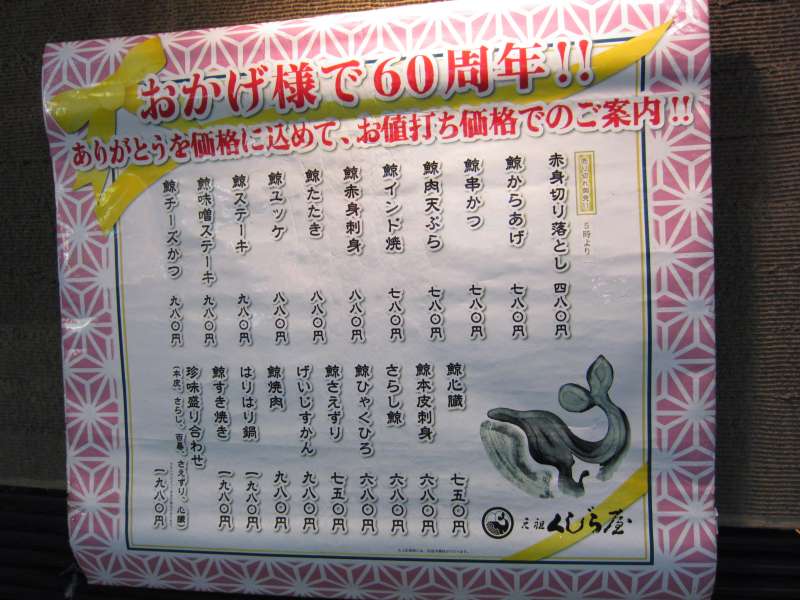 おかげ様で60周年!!
ありがとうを価格に込めて、お値打ち価格でのご案内!!
5時より
赤身切り落とし 四八〇円
鯨からあげ 七八〇円
鯨串かつ 七八〇円
鯨肉天ぷら 七八〇円
鯨インド焼 七八〇円
鯨赤身刺身 八八〇円
鯨たたき 八八〇円
鯨ユッケ 八八〇円
鯨ステーキ 九八〇円
鯨味噌ステーキ 九八〇円
鯨チーズかつ 九八〇円
鯨心臓 七五〇円
鯨本皮刺身 六八〇円
さらし鯨 六八〇円
鯨ひゃくひろ 六八〇円
鯨さえずり 七五〇円
げいじすかん 九八〇円
鯨焼肉 九八〇円
はりはり鍋 一九八〇円
鯨すき焼き 一九八〇円
珍味盛り合わせ 一九八〇円
(本皮、さらし、百尋、さえずり、心臓)
元祖くじら屋